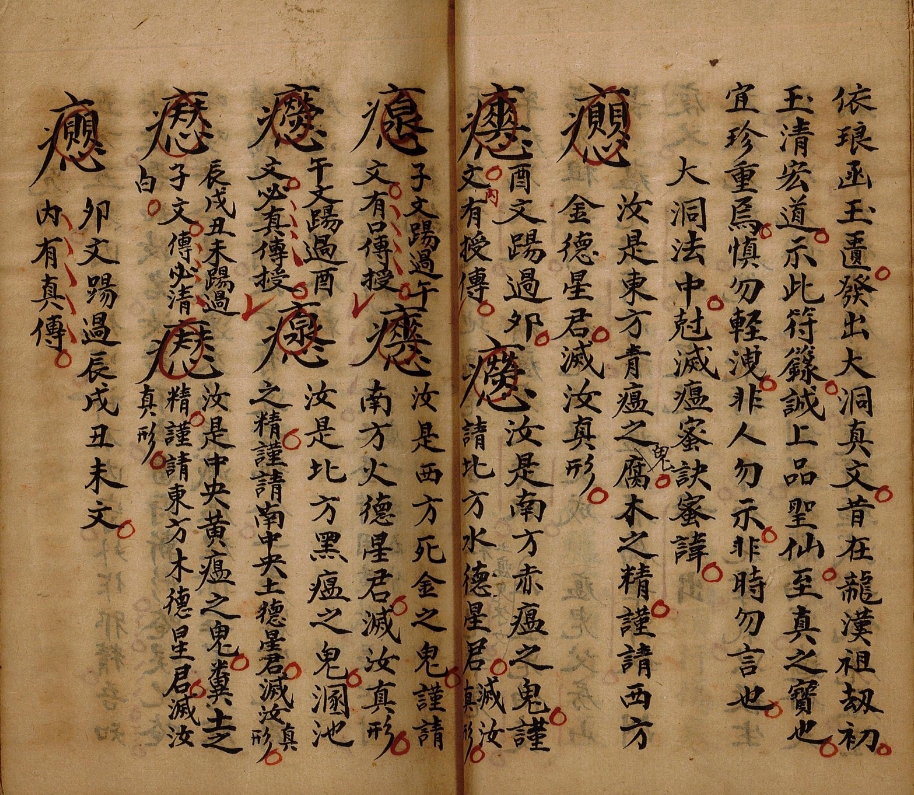 依琅函玉匱發出大洞真文昔在龍漢祖刼初
玉清宏道示此符籙誠上品聖仙至真之寶也
宜珍重焉慎勿輕洩非人勿示非時勿言也
大洞法中尅滅瘟蜜訣蜜諱
汝是東方青瘟之鬼腐木之精謹請西方
金德星君滅汝真形
酉文踢過卯
文内有授傳
汝是南方赤瘟之鬼謹
請北方水德星君滅汝真形
子文踢過午
文有吕傳授
汝是西方死金之鬼謹請
南方火德星君滅汝真形
午文踢過酉
文必真傳授
汝是北方黑瘟之鬼溷池
之精謹請南中央土德星君滅汝真形
辰戌丑未踢過
子文傳必清
白
汝是中央黃瘟之鬼糞土之
精謹請東方木德星君滅汝
真形
卯文踢過辰戌丑未文
内有真傳